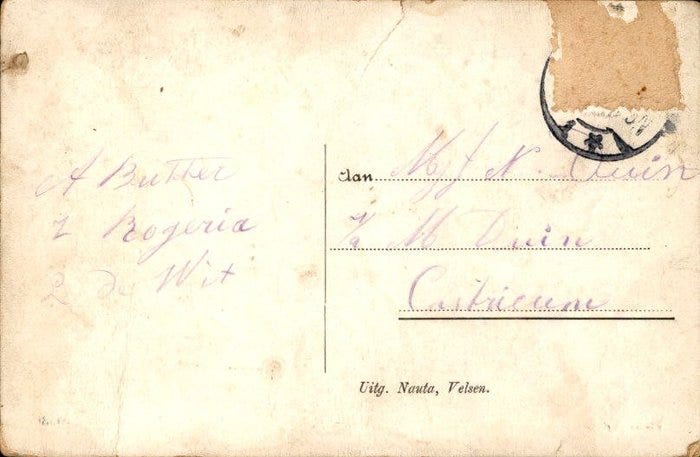 A Butter
Z Bogeria
2 de Wit
Aan Mej N. Duin
M Duin
Castricum
Uitg. Nauta, Velsen.